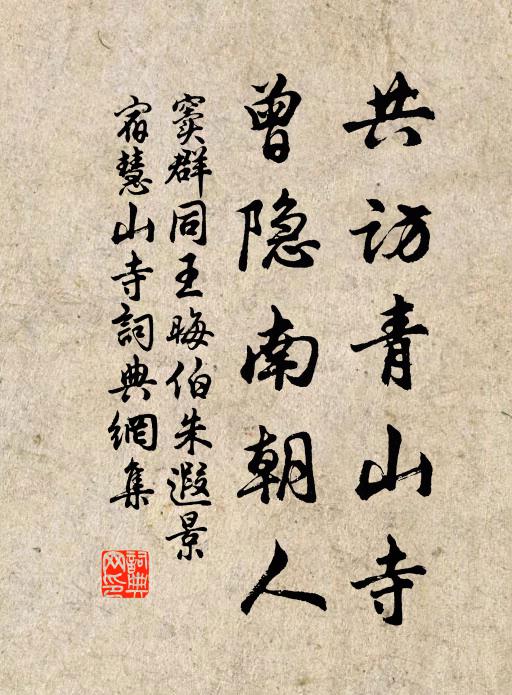 共访青山寺
曾隐南朝人
窦群同王晦伯朱遐景
宿慧山寺詞典網集
詞典网印